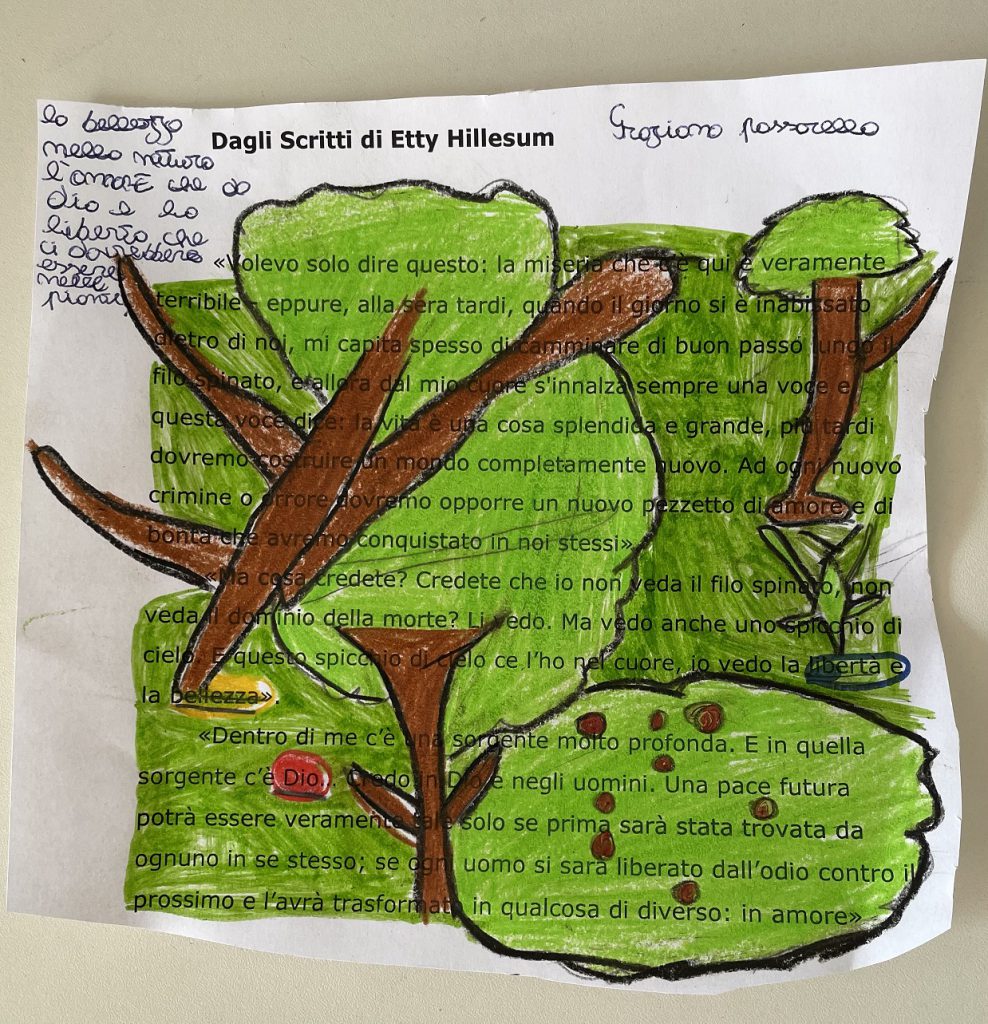 la bellezza
nella natura
l'amore che da
Dio e la
libertà che
ci dovrebbero
essere
nelle
Dagli Scritti di Etty Hillesum
Graziano passarello
«Volevo solo dire questo: la miseria che c'è qui è veramente
terribile - eppure, alla sera tardi, quando il giorno si è inabissato
dietro di noi, mi capita spesso di camminare di buon passo lungo il
filo spinato, e allora dal mio cuore s'innalza sempre una voce e
questa voce dice: la vita è una cosa splendida e grande, più tardi
dovremo costruire un mondo completamente nuovo. Ad ogni nuovo
crimine o orrore dovremo opporre un nuovo pezzetto di amore e di
bontà che avremo conquistato in noi stessi»
«Ma cosa credete? Credete che io non veda il filo spinato, non
veda il dominio della morte? Li vedo. Ma vedo anche uno spicchio di
cielo. E questo spicchio di cielo ce l'ho nel cuore, io vedo la libertà e
la bellezza».
«Dentro di me c'è una sorgente molto profonda. E in quella
sorgente c'è Dio. Credo in Dio e negli uomini. Una pace futura
potrà essere veramente tale solo se prima sarà stata trovata da
ognuno in se stesso; se ogni uomo si sarà liberato dall'odio contro il
prossimo e l'avrà trasformato in qualcosa di diverso: in amore»